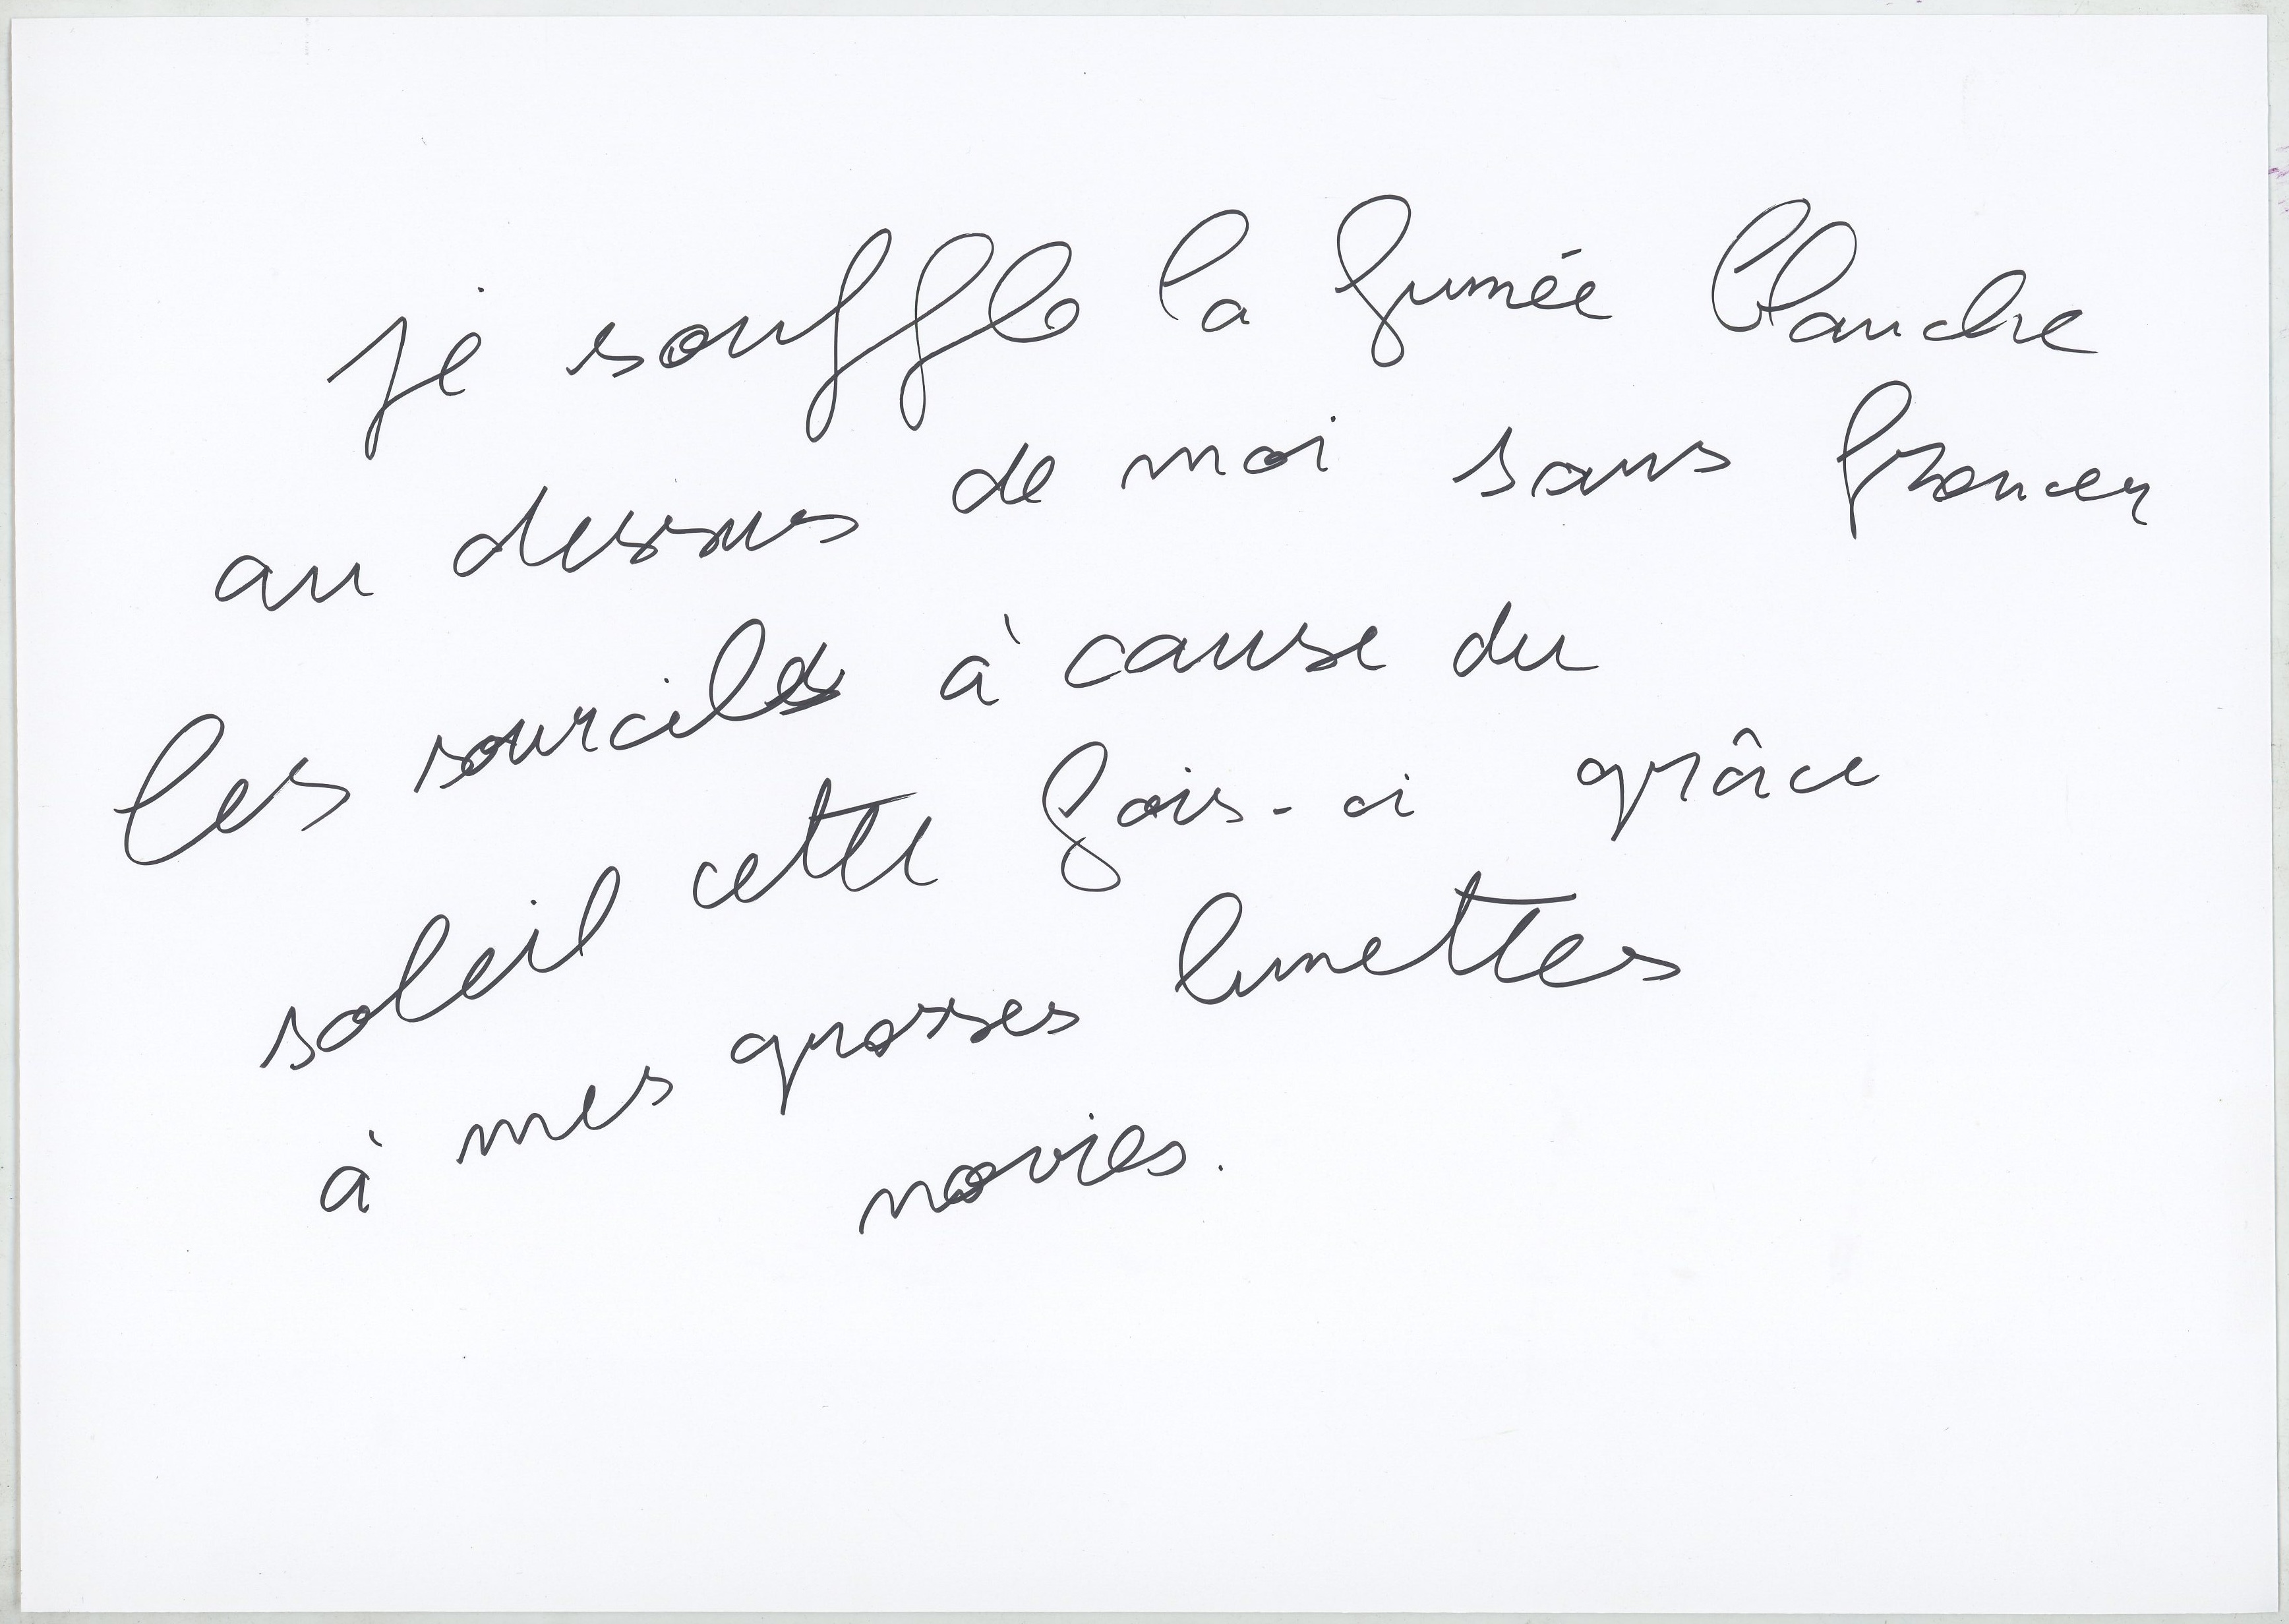 je souffle la fumée blanche
au dessus de moi sans froncer
les sourcils à cause du
soleil cette fois-ci grâce
à mes grosses lunettes
noires.